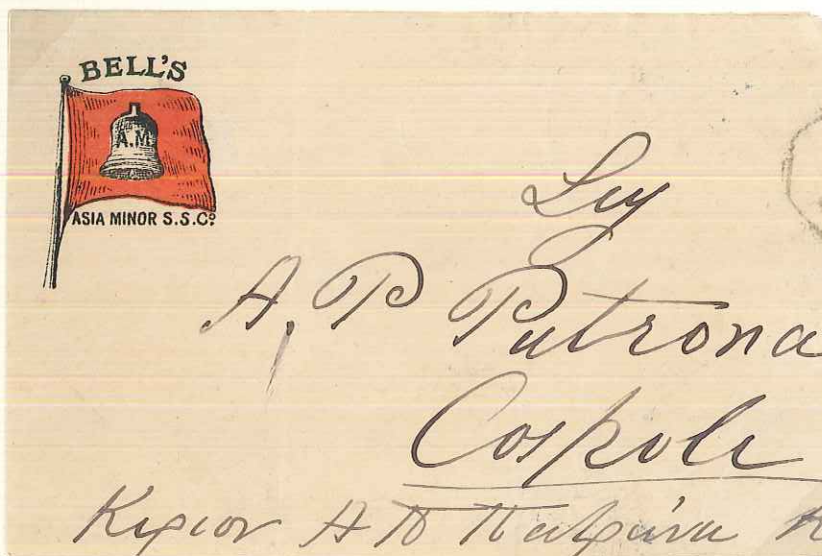 BELL'S
A.M.
ASIA MINOR S.S.Cº
A. P Patrona
Cospoli
Κύριον Α Π Πατρώνα